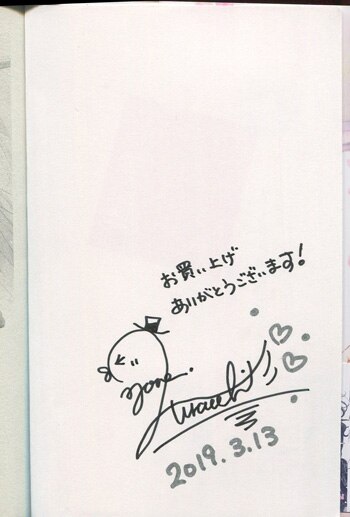 お買い上げ
ありがとうございます!
2019.3.13